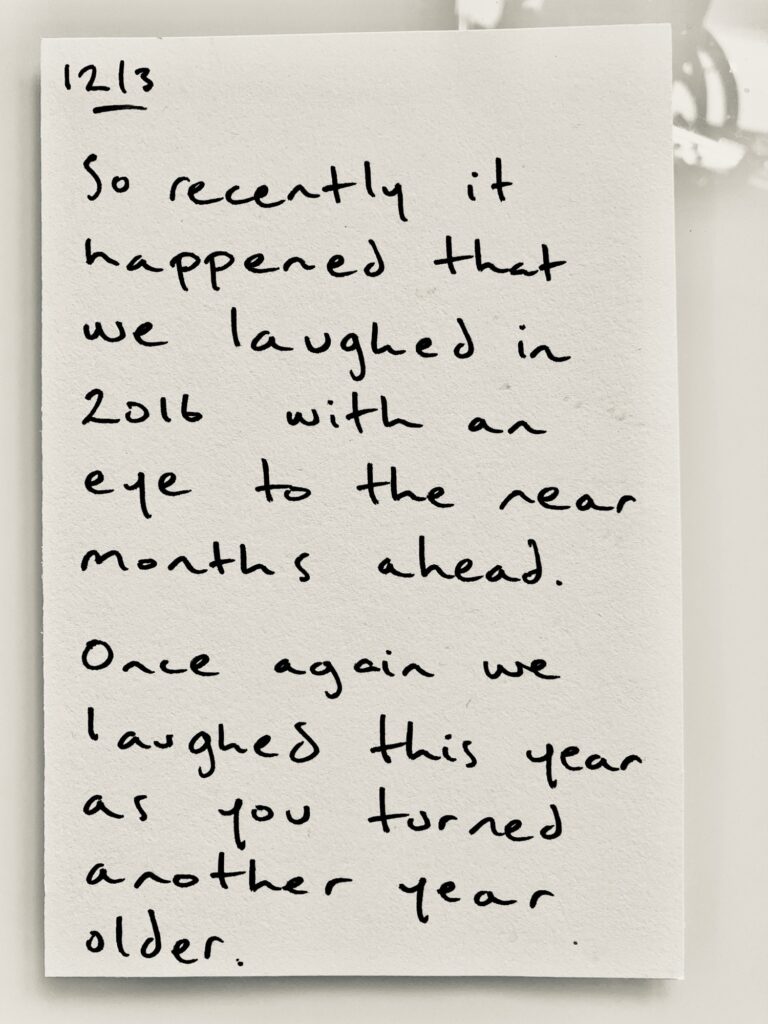 12/3
So recently it
happened that
we laughed in
2016 with an
eye to the near
months ahead.
Once again we
laughed this year
as you turned
another year
older.